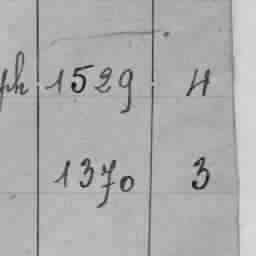 ph 1529 4
1370 3